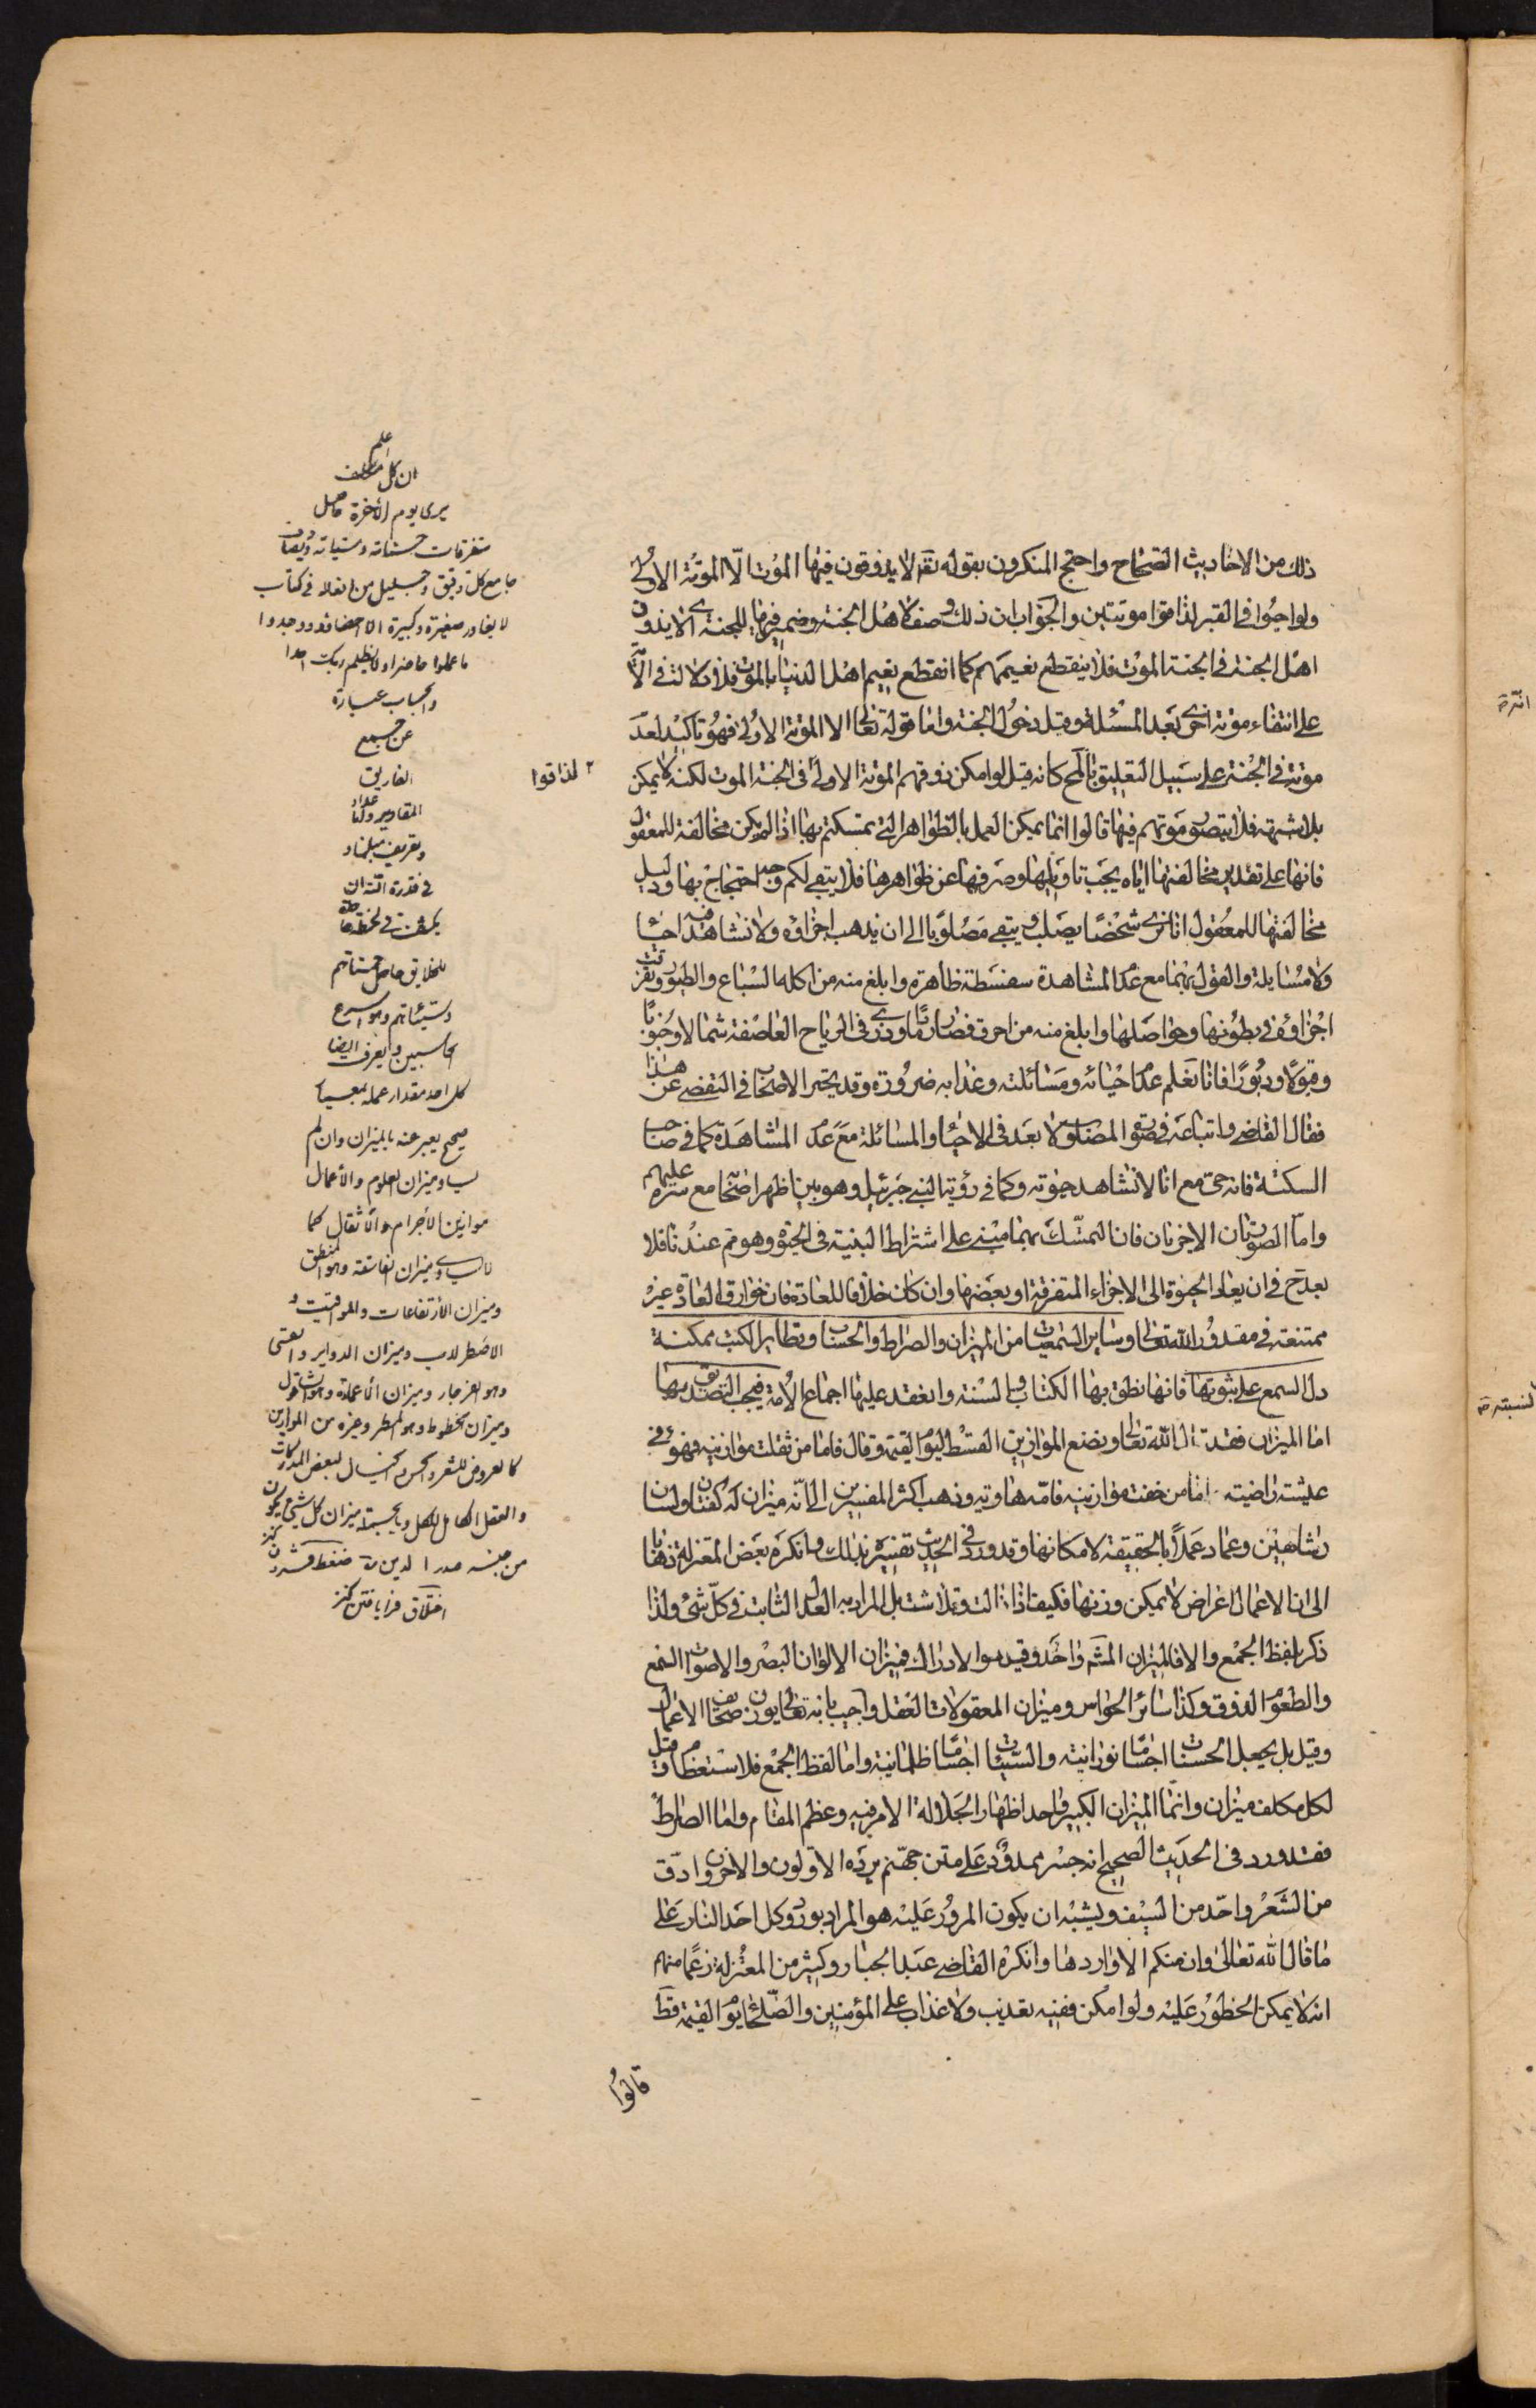 ذلك من الاحاديث الصحاح واحتج المنكرون بقوله تعه لا يذوقون فيها الموت الّا الموتة الاولى
ولو احيوا فى القبر لذاقوا موتتين والجواب ان ذلك وصف لاهل الجنة وضمير فيها للجنة اى لا يذوق
اهل الجنة فى الجنة الموت فلا ينقطع نعيمهم كما انقطع نعيم اهل الدنيا بالموت فلا دلالة فى الآية
على انتفاء موتة اخرى بعد المسئلة وقبل دخول الجنة واما قوله تعالى الا الموتة الاولى فهو تاكيد لعدم
موتتهم فى الجنة على سبيل التعليق بالمحال كانه قيل لو امكن ذوقهم الموتة الاولى فى الجنة الموت لكنه لا يمكن
بلا شبهة فلا يتصور موتهم فيها قالوا انما يمكن العمل بالظواهر التى تمسكتم بها اذا لم يكن مخالفة للمعقول
فانها على تقدير مخالفتها اياه يجب تاويلها وصرفها عن ظواهرها فلا يبقى لكم وجه احتجاج بها ودليل
مخالفتها للمعقول انا نرى شخصًا يصلب ويبقى مصلوبا الى ان يذهب اجزاؤه ولا نشاهد فيه احياء
ولا مسايلة والقول بهما مع عدم المشاهدة سفسطة ظاهرة وابلغ منه من اكله السباع والطيور وتفرقت
اجزاؤه فى بطونها وحواصلها وابلغ منه من احرق فصار رمادا وذرى فى الرياح العاصفة شمالا وجنوبًا
وقبولًا ودبورًا فانا نعلم عدم احيائه ومسائلته وعذابه ضرورة وقد تحير الاصحاب فى التفصى عن هذا
فقال القاضى واتباعه فى صورة المصلوب لا بعد فى الاحياء والمسائلة مع عدم المشاهدة كما فى صاحب
السكتة فانه حى مع انا لا نشاهد حيوته وكما فى رؤية النبى جبرئيل وهو بين اظهر اصحابه مع ستره عليهم
واما الصورتان الاخريان فان التمسك بهما مبنى على اشتراط البنية فى الحيوة وهو مم عندنا فلا
بعد ح فى ان يعاد الحيوة الى الاجزاء المتفرقة او بعضها وان كان خلاف العادة فان خوارق العادة غير
ممتنعة فى مقدور الله تعالى وساير السمعيات من الميزان والصراط والحساب وتطاير الكتب ممكنة
دل السمع على ثبوتها فانها نطق بها الكتاب والسنة وانعقد عليها اجماع الامة فيجب التصديق بها
اما الميزان فقد قال الله تعالى ونضع الموازين القسط ليوم القيمة وقال فاما من ثقلت موازينه فهو فى
عيشة راضية واما من خفت موازينه فامّه هاوية وذهب اكثر المفسرين الى انّه ميزان له كفتان ولسان
وشاهين وعماد عملًا بالحقيقة لامكانها وقد ورد فى الحديث تفسيره بذلك وانكره بعض المعتزلة ذهابا
الى ان الاعمال اعراض لا يمكن وزنها فكيف اذا زالت وتلاشت بل المراد به العدل الثابت فى كلّ شئ ولذا
ذكر بلفظ الجمع والا فالميزان المشهور واحد وقيل هو الادراك فميزان الالوان البصر والاصوات السمع
والطعوم الذوق وكذا سائر الحواس وميزان المعقولات العقل واجيب بانه تعالى يوزن صحايف الاعمال
وقيل بل يجعل الحسنات اجسامًا نورانية والسيئات اجسامًا ظلمانية واما لفظ الجمع فلاستعظام وقيل
لكل مكلف ميزان وانّما الميزان الكبير واحد اظهارا لجلالة الامر فيه وعظم المقام واما الصراط
فقد ورد فى الحديث الصحيح انه جسر ممدود على متن جهنم يرده الاولون والاخرون ادق
من الشعر واحد من السيف ويشبه ان يكون المرور عليه هو المراد بورود كل احد النار على
ما قال الله تعالى وان منكم الا واردها وانكره القاضى عبد الجبار وكثير من المعتزلة زعمًا منهم
انه لا يمكن الخطور عليه ولو امكن ففيه تعذيب ولا عذاب على المؤمنين والصلحاء يوم القيمة قط
قالوا
لذاقوا
علم
ان كل مكلف
يرى يوم الآخرة حاصل
متفرقات حسناته وسيئاته
جامع كل دقيق وجليل من افعاله فى كتاب
لا يغادر صغيرة وكبيرة الا احصاها ووجدوا
ما عملوا حاضرا ولا يظلم ربك احدا
والحساب عبارة
عن جمع
تفاريق
المقادير والاعداد
وتعريف مبلغها و
فى قدرة الله ان
يكشف فى لحظة
للخلايق حاصل حسناتهم
وسيئاتهم وهو اسرع
الحاسبين وليعرف ايضا
كل احد مقدار عمله بمعيار
صحيح يعبر عنه بالميزان وان لم
يساو ميزان العلوم والاعمال
موازين الاجرام والاثقال كما
لا يساوى ميزان الفلسفة وهو المنطق
وميزان الارتفاعات والمواقيت و
الاصطرلاب وميزان الدواير والقسى
وهو الفرجار وميزان الاعمدة وهو الشاقول
وميزان الخطوط وهو المسطر وغيره من الموازين
كالعروض للشعر والحس والخيال لبعض المدركات
والعقل الكامل للكل وبالجملة ميزان كل شئ يكون
من جنسه صدر الدين